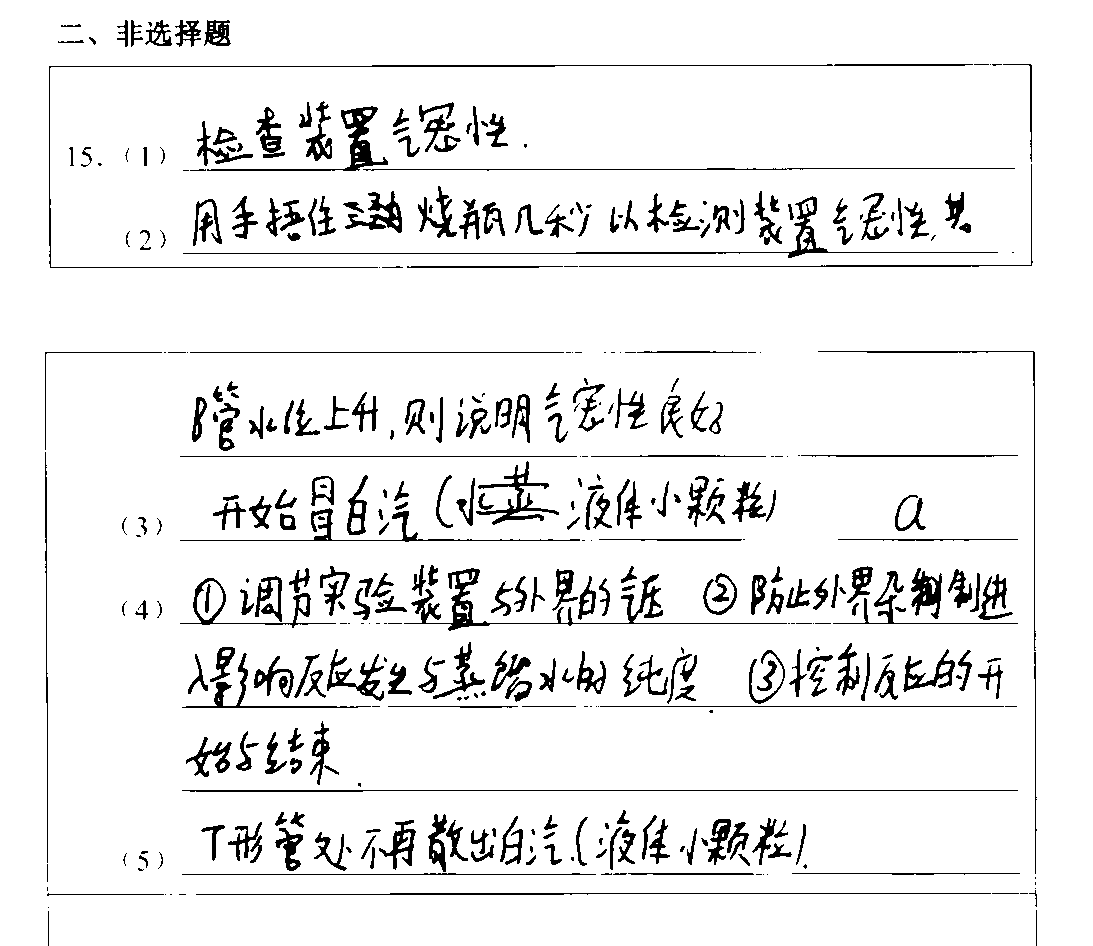 二、非选择题
15.（1） 检查装置气密性.
（2） 用手捂住 烧瓶几秒以检测装置气密性,若
B管水位上升,则说明气密性良好
（3） 开始冒白汽(水蒸 液体小颗粒) a
（4） ①调节实验装置与外界的气压 ②防止外界杂 制进
入影响反应发生与蒸馏水的纯度. ③控制反应的开
始与结束.
（5） T形管处不再散出白汽(液体小颗粒).